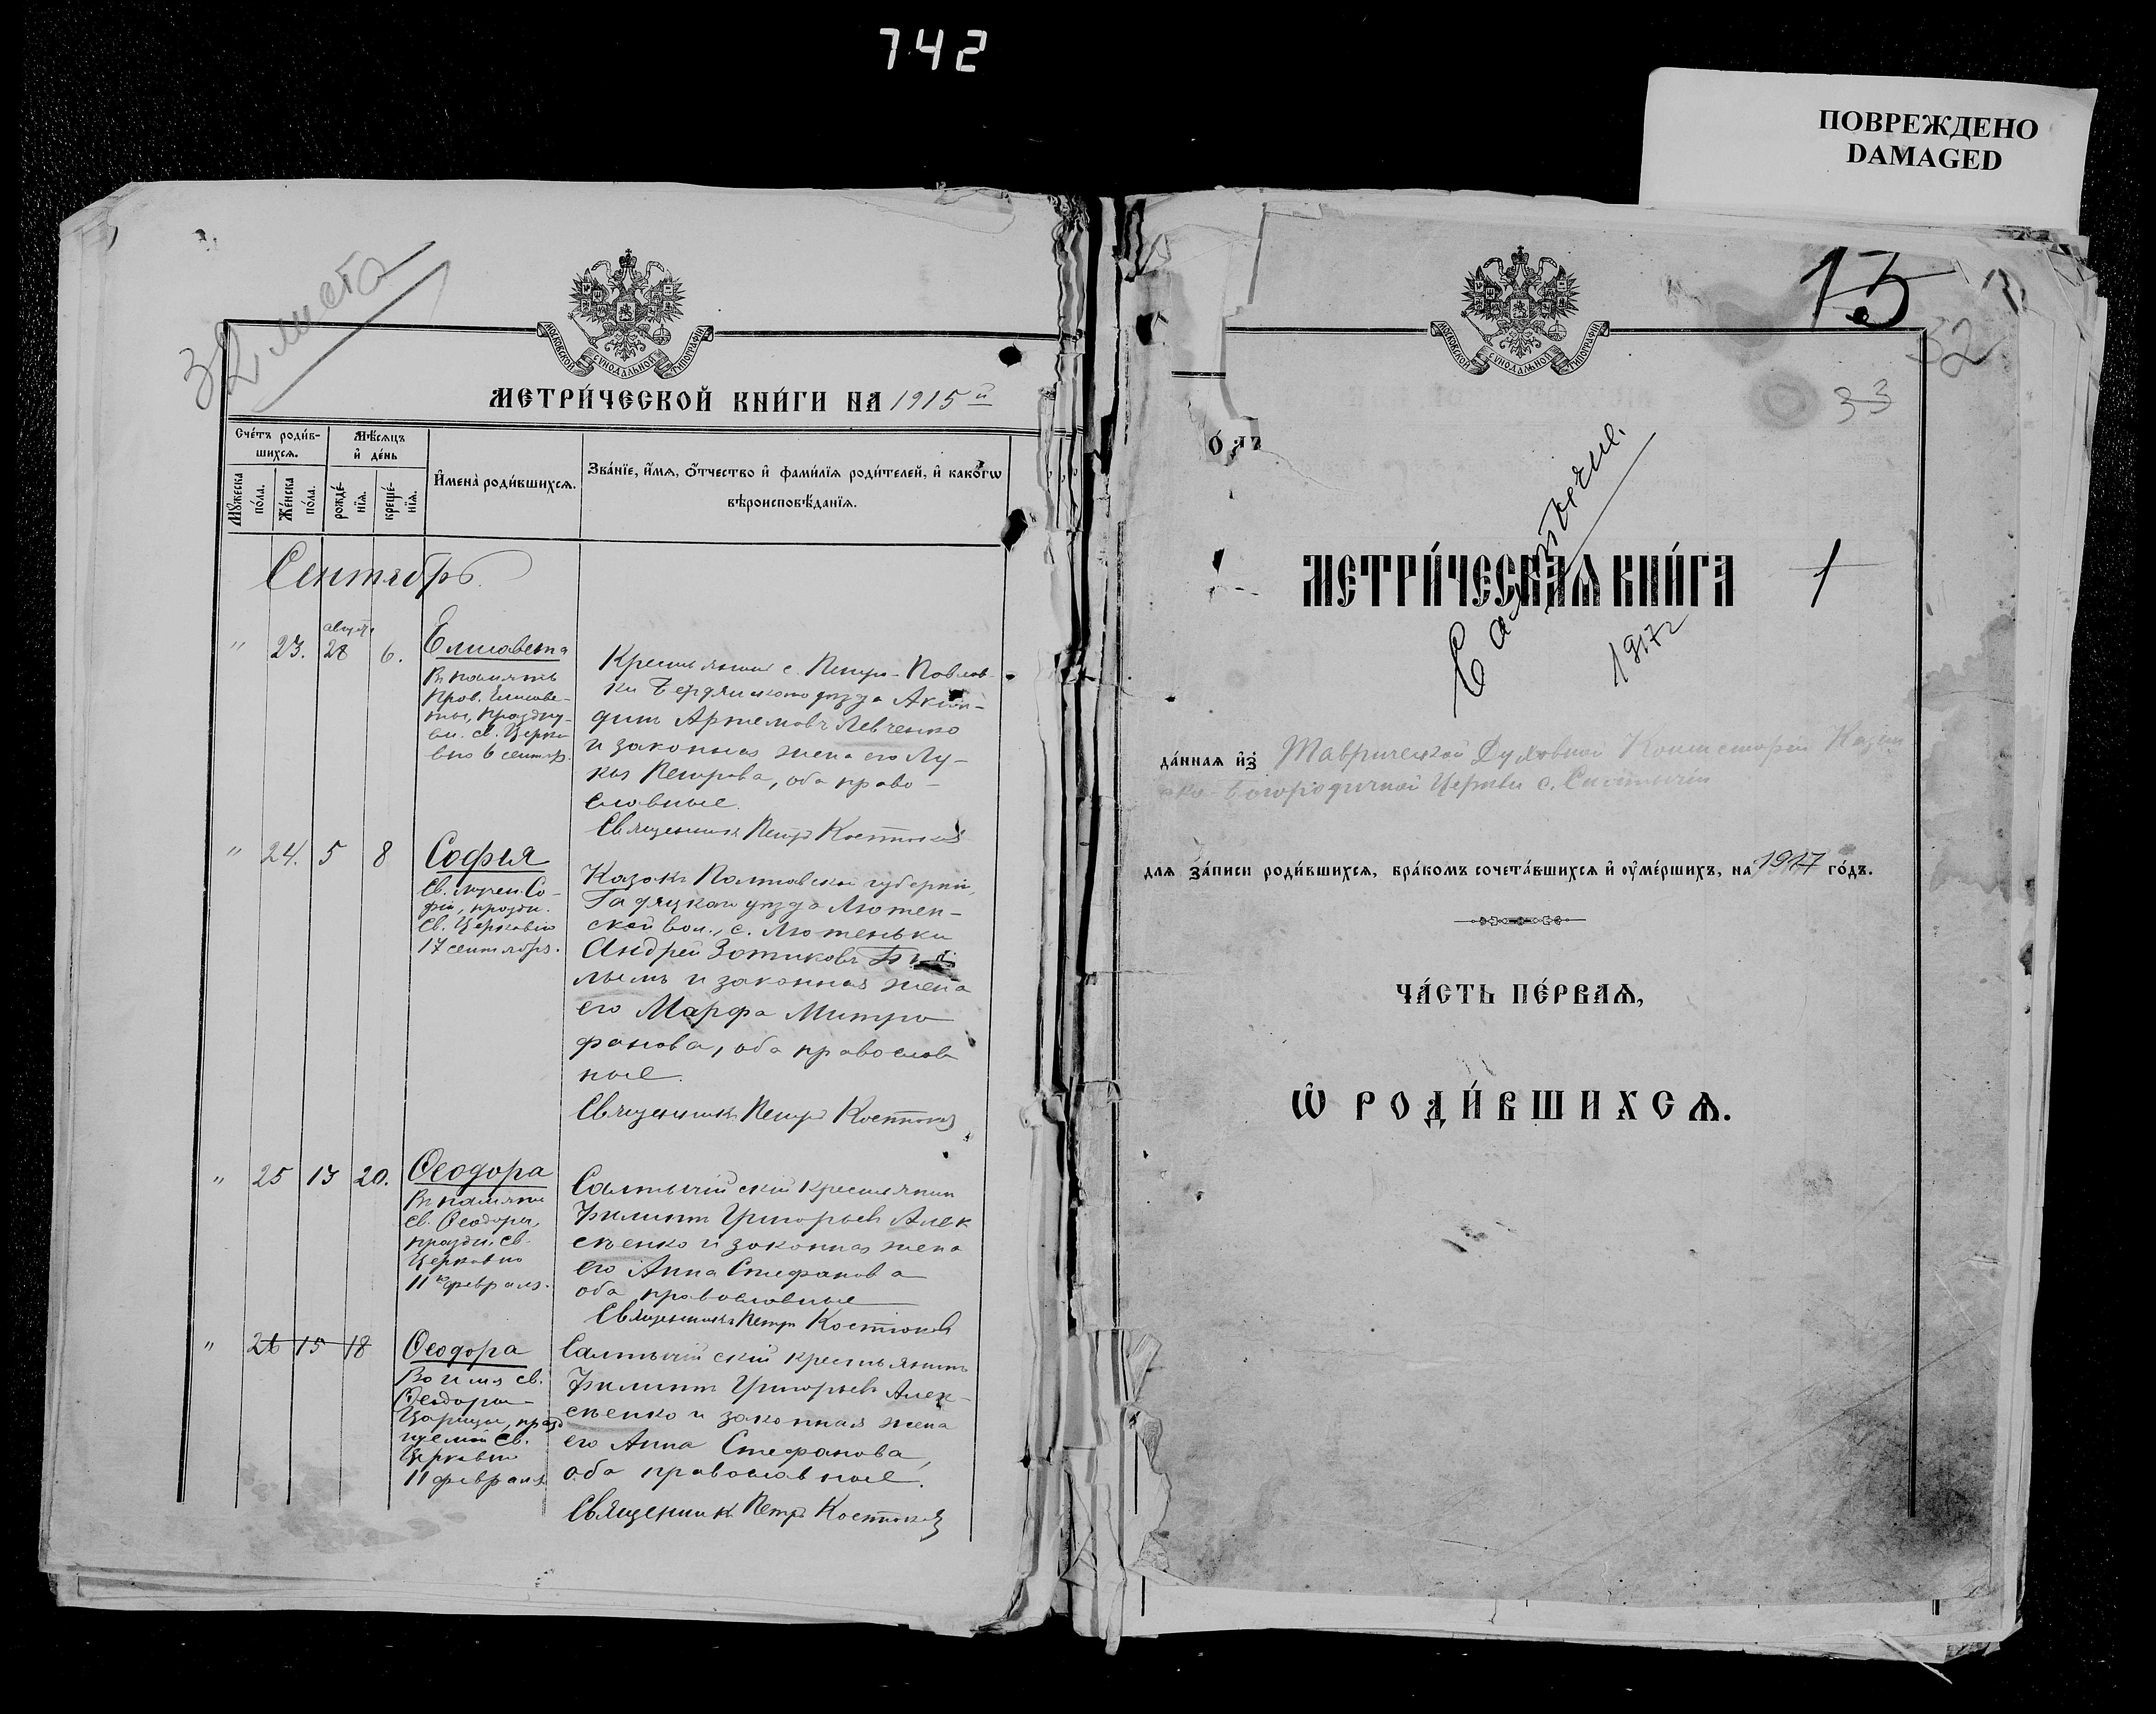 742
ПОВРЕЖДЕНО
DAMAGED
32 листа
МОСКОВСКОЙ СУНОДАЛЬНОЙ ТИПОГРАФІИ
МЕТРИ́ЧЕСКОЙ КНИ́ГИ НА 1915й
Сче́тъ роди́в-
шихсѧ.
Мѣ́сѧцъ
и҆ де́нь
И҆мена̀ роди́вшихсѧ.
Зва́нїе, и҆́мѧ, ѻ҆́тчество и҆ фами́лїѧ роди́телей, и҆ како́гѡ
вѣроисповѣ́данїѧ.
Мꙋ́жеска
по́ла.
Же́нска
по́ла.
рожде́-
нїѧ.
креще́-
нїѧ.
Сентябрь.
" 23. августа 28 6.
Елисавета
Въ память
Прав. Елисаве-
ты, праздну-
ем. св. Церко-
вью 6 сентяб.
Крестьянинъ с. Петро-Павлов-
ки Бердянского уѣзда
Артемовъ Левченко
и законная жена его Лу-
Петрова, оба право-
славные.
Священникъ Петръ Костюковъ
" 24. 5 8
София
Св. мучен. Со-
фіи, праздн.
Св. Церковію
17 сентября.
Казакъ Полтавской губерніи,
Гадяцкаго уѣзда Лютен-
ской вол., с. Лютеньки
Андрей Зотиковъ
и законная жена
его Марфа Митро-
фанова, оба православ-
ные.
Священникъ Петръ Костюковъ
" 25 13 20.
Ѳеодора
Въ память
св. Ѳеодоры,
праздн. св.
Церковью
11го февраля.
Салтычійскій крестьянинъ
Филиппъ Григорьевъ Алек-
сѣенко и законная жена
его Анна Стефанова
оба православные
Священникъ Петръ Костюковъ
" 26 15 18
Ѳеодора
Во имя св.
Ѳеодоры
Царицы, празд-
нуемой св.
Церковью
11 февраля
Салтычійскій крестьянинъ
Филиппъ Григорьевъ Алек-
сѣенко и законная жена
его Анна Стефанова,
оба православные.
Священникъ Петръ Костюковъ
13
32
33
МОСКОВСКОЙ СУНОДАЛЬНОЙ ТИПОГРАФІИ
Салтычія.
1917г
МЕТРИ́ЧЕСКАѦ КНИ́ГА
1
да́ннаѧ и҆з̾ Таврической Духовной Консисторіи Казан
ско-Богородичной Церкви с.
длѧ за́писи роди́вшихсѧ, бра́комъ сочета́вшихсѧ и҆ оу҆ме́ршихъ, на 1917 го́дъ.
ЧА́СТЬ ПЕ́РВАѦ,
Ѡ҆ РОДИ́ВШИХСѦ.